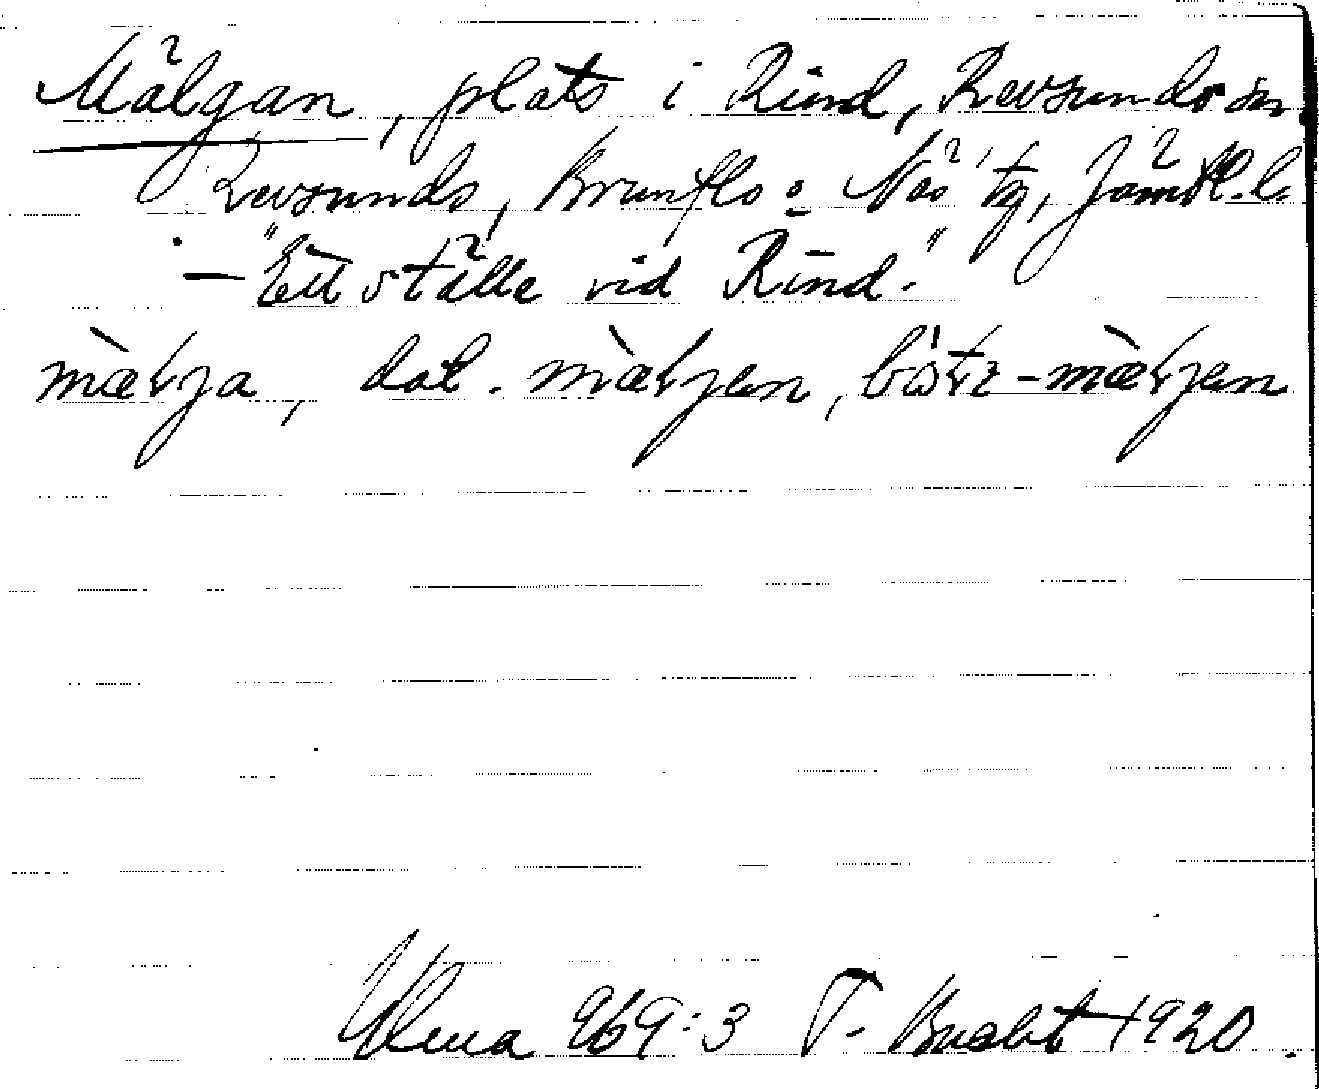 Mälgan, plats i Rind, Revsunds sn
Revsunds, Brunflo o. Näs tg, Jämtl. l.
— "Ett ställe vid Rind."
mæłja, dat. mæłjen,
Ulma 969:3 T. Bucht 1920.